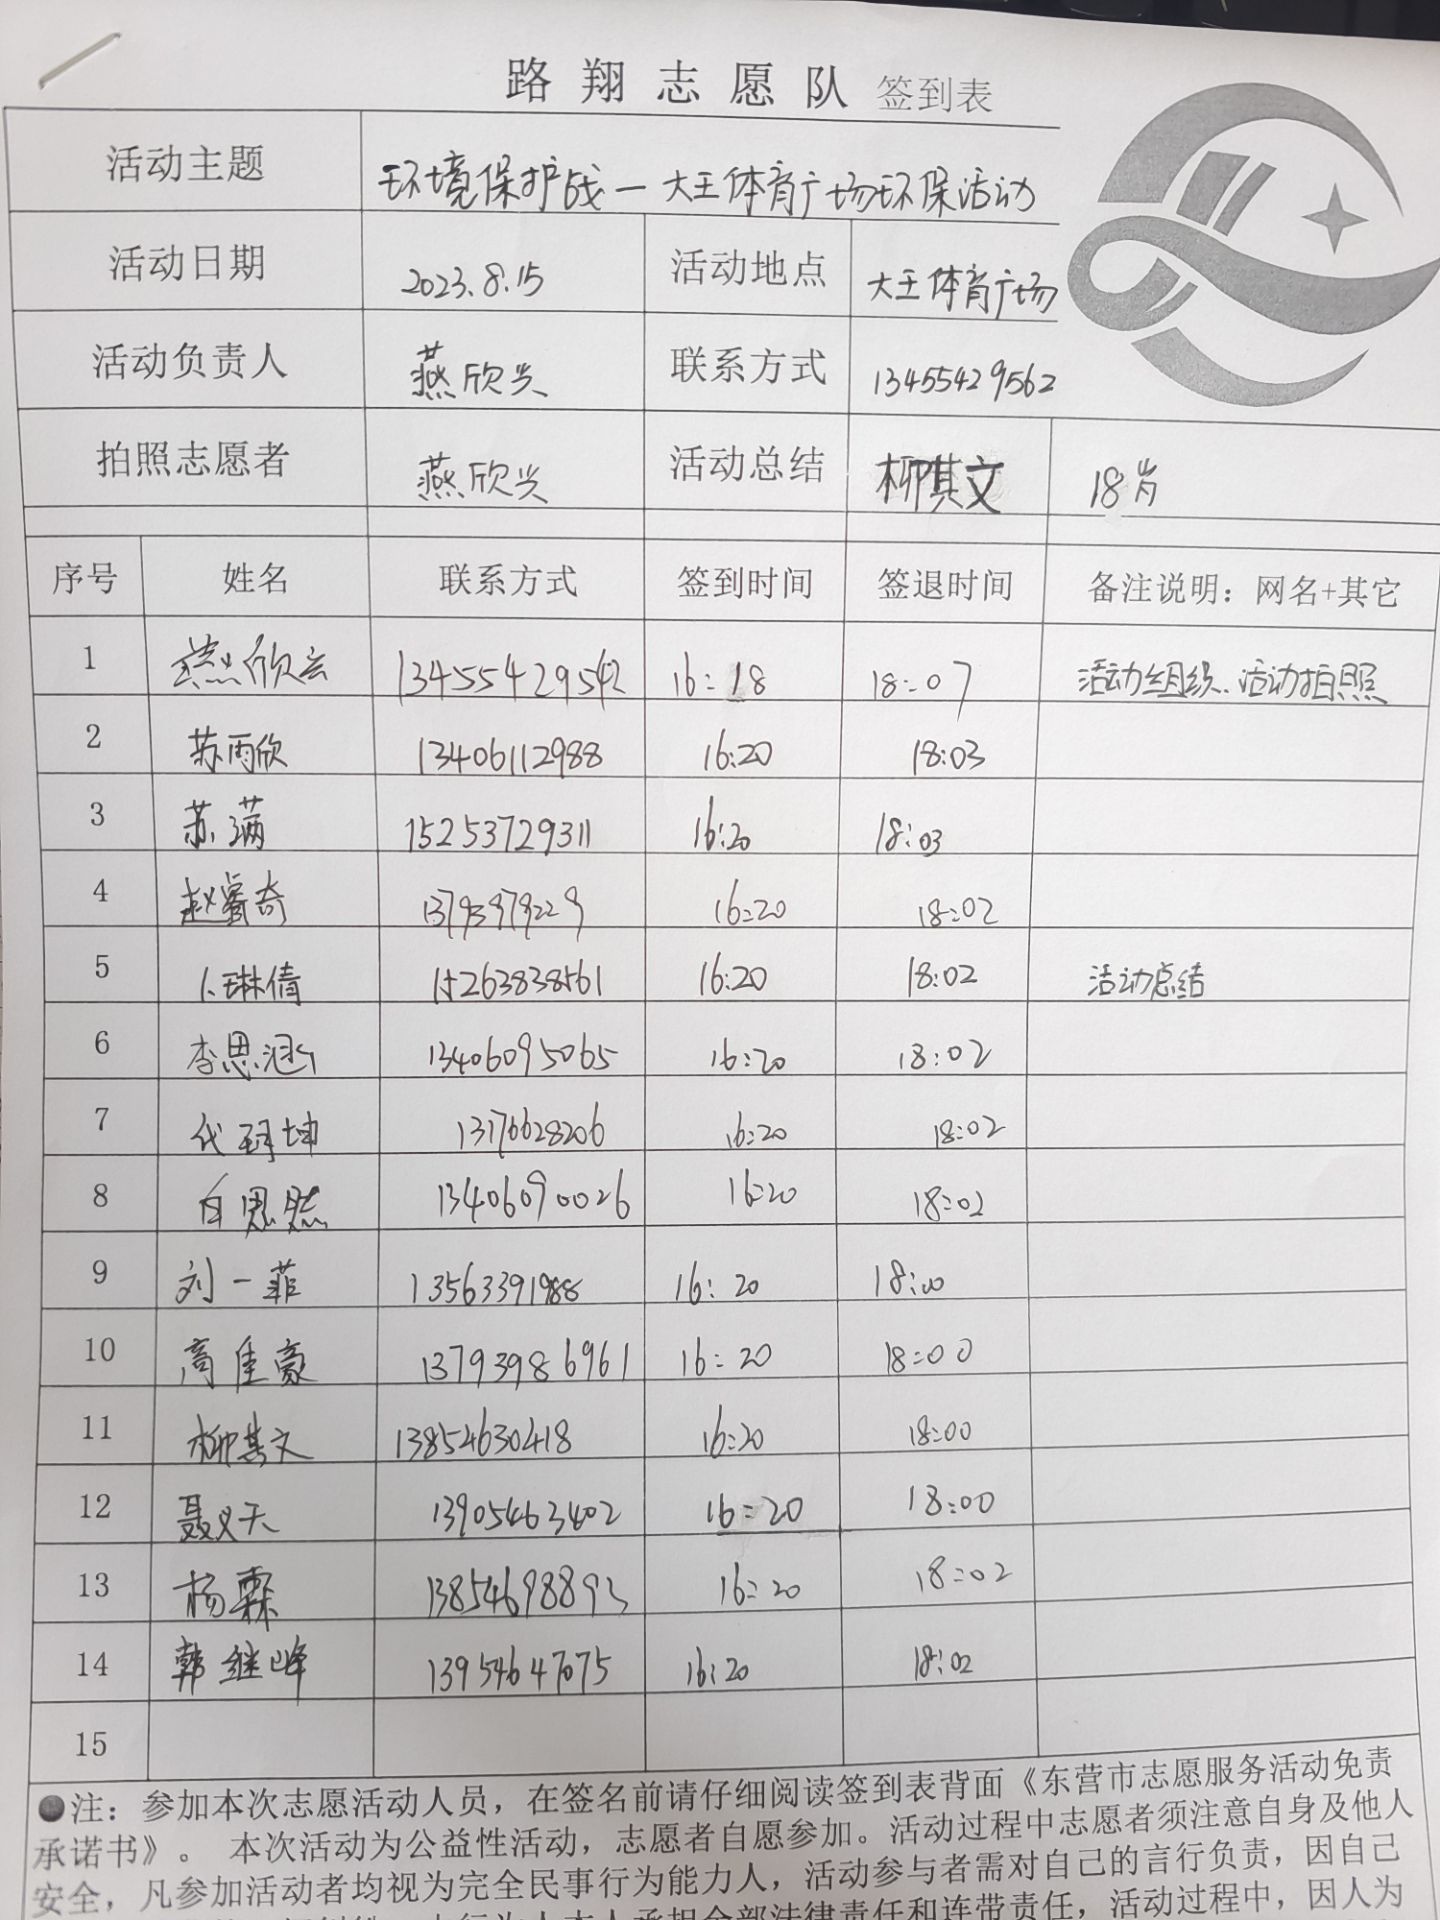 路翔志愿队 签到表
活动主题 环境保护战一大王体育广场环保活动
活动日期 2023.8.15 活动地点 大王体育广场
活动负责人 燕欣兴 联系方式 13455429562
拍照志愿者 燕欣兴 活动总结 柳其文 18岁
序号 姓名 联系方式 签到时间 签退时间 备注说明：网名+其它
1 燕欣 16:18 18:07 活动组织、活动拍照
2 苏雨欣 13406112988 16:20 18:03
3 苏满 15253729311 16:20 18:03
4 赵睿奇 13793979229 16:20 18:02
5 琳倩 15263838561 16:20 18:02 活动总结
6 李思涵 13406095065 16:20 18:02
7 代 坤 13176628206 16:20 18:02
8 思然 13406090026 16:20 18:02
9 刘一菲 13563391988 16:20 18:00
10 高佳豪 13793986961 16:20 18:00
11 柳其文 13854630418 16:20 18:00
12 聂义天 13905463402 16:20 18:00
13 杨霖 13854698893 16:20 18:02
14 韩继峰 13954647075 16:20 18:02
15
●注：参加本次志愿活动人员，在签名前请仔细阅读签到表背面《东营市志愿服务活动免责
承诺书》。 本次活动为公益性活动，志愿者自愿参加。活动过程中志愿者须注意自身及他人
安全，凡参加活动者均视为完全民事行为能力人，活动参与者需对自己的言行负责，因自己
本人承担全部法律责任和连带责任，活动过程中，因人为